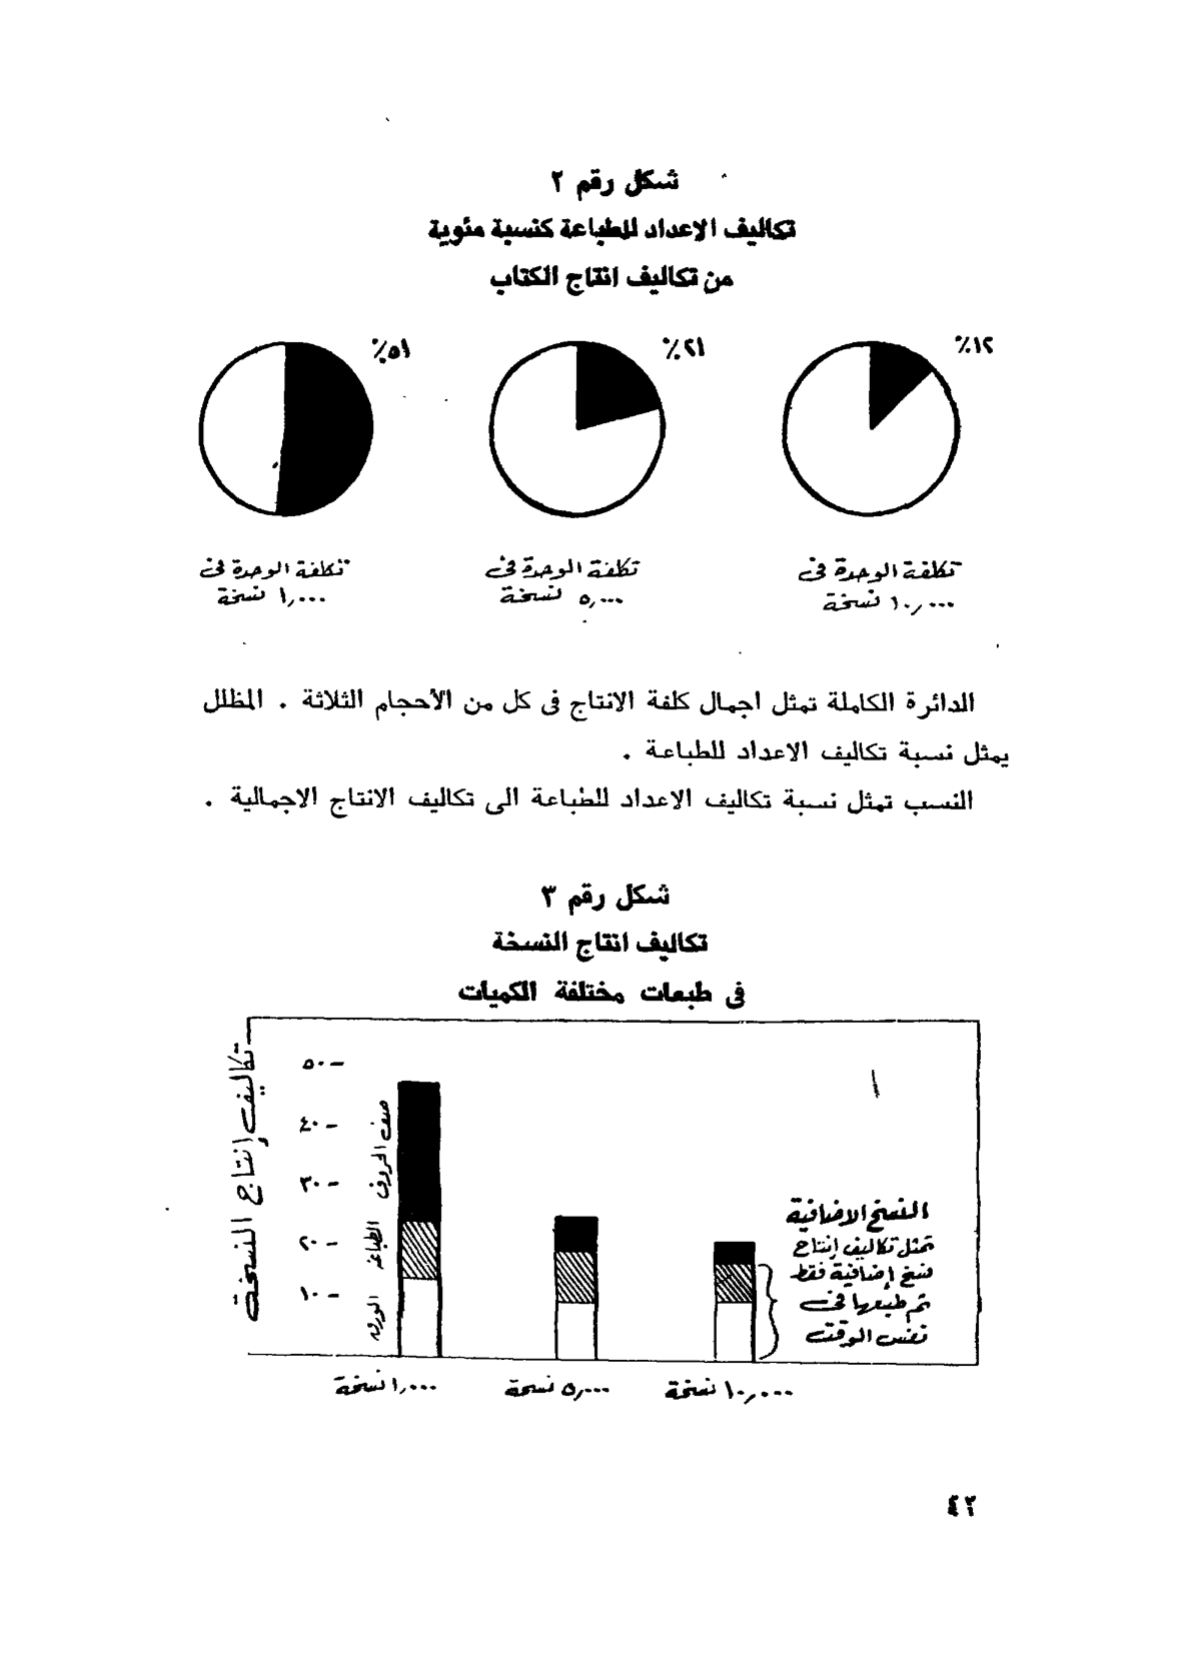 شكل رقم ٢
تكاليف الاعداد للطباعة كنسبة مئوية
من تكاليف انتاج الكتاب
٪١٢
٪٢١
٪٥١
تكلفة الوحدة فى
١٠,٠٠٠ نسخة
تكلفة الوحدة فى
٥,٠٠٠ نسخة
تكلفة الوحدة فى
١,٠٠٠ نسخة
الدائرة الكاملة تمثل اجمال كلفة الانتاج فى كل من الأحجام الثلاثة . المظلل
يمثل نسبة تكاليف الاعداد للطباعة .
النسب تمثل نسبة تكاليف الاعداد للطباعة الى تكاليف الانتاج الاجمالية .
شكل رقم ٣
تكاليف انتاج النسخة
فى طبعات مختلفة الكميات
تكاليف إنتاج النسخة
٥٠ –
٤٠ –
٣٠ –
٢٠ –
١٠ –
صف الحروف
الطباعة
الورق
النسخ الاضافية
تمثل تكاليف إنتاج
نسخ إضافية فقط
تم طبعها فى
نفس الوقت
١,٠٠٠ نسخة
٥,٠٠٠ نسخة
١٠,٠٠٠ نسخة
٤٢